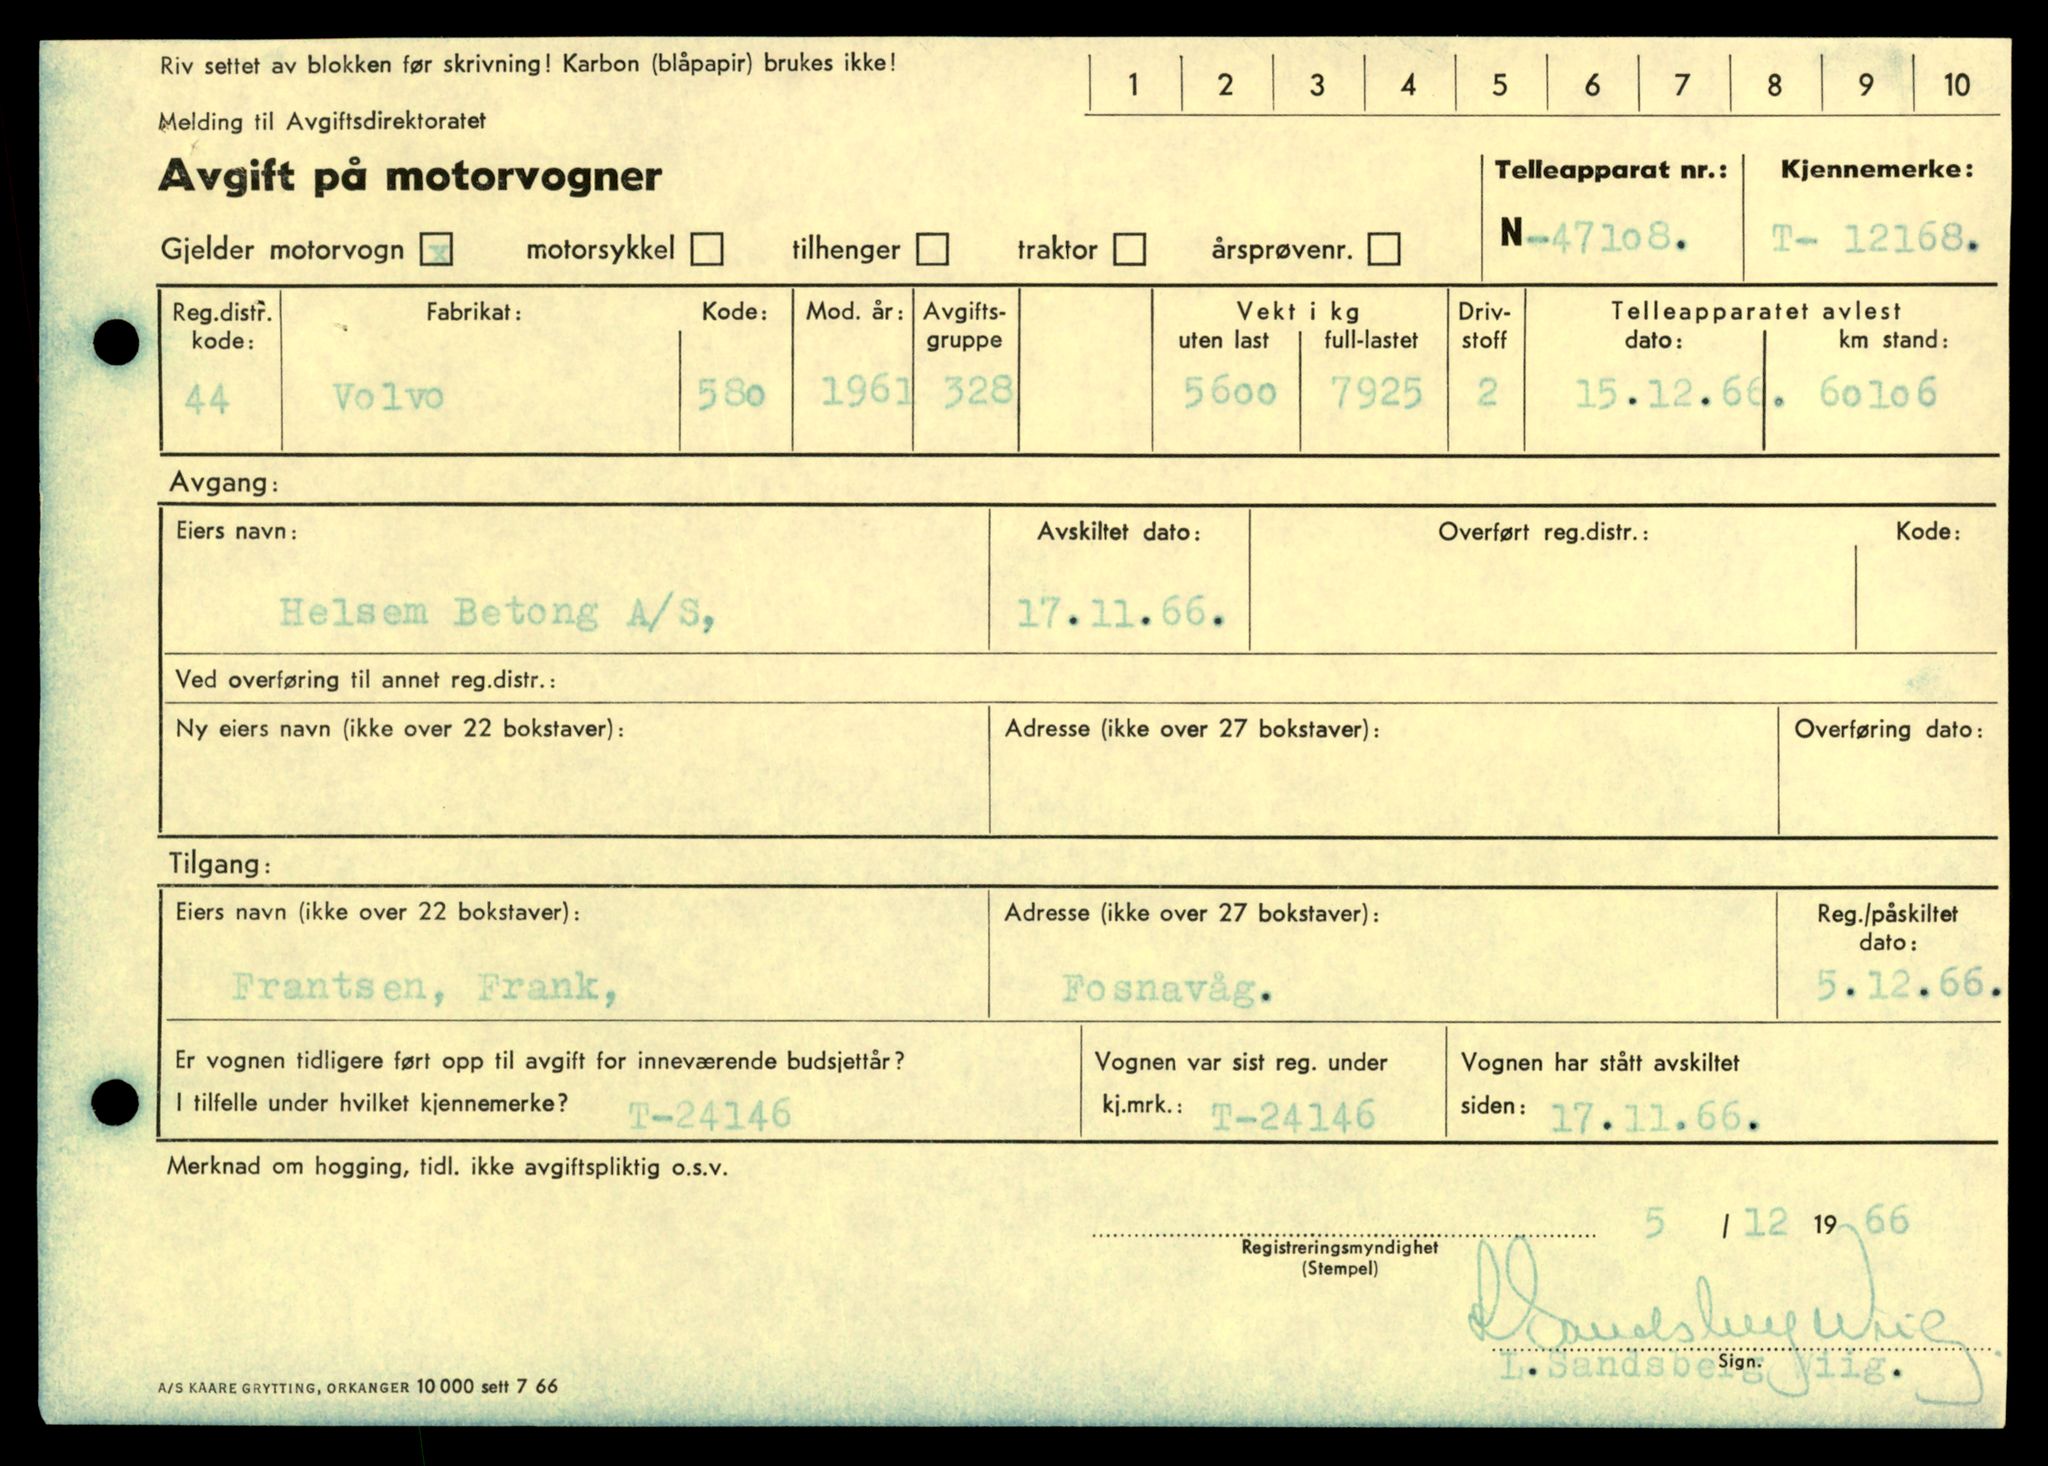 Riv settet av blokken før skrivning! Karbon (blåpapir) brukes ikke!
1 2 3 4 5 6 7 8 9 10
Melding til Avgiftsdirektoratet
Avgift på motorvogner
Telleapparat nr.: Kjennemerke:
N-47108. T- 12168.
Gjelder motorvogn x motorsykkel tilhenger traktor årsprøvenr.
Reg.distr. Fabrikat: Kode: Mod. år: Avgifts- Vekt i kg Driv- Telleapparatet avlest
kode: gruppe uten last full-lastet stoff dato: km stand:
44 Volvo 580 1961 328 5600 7925 2 15.12.66. 60106
Avgang:
Eiers navn: Avskiltet dato: Overført reg.distr.: Kode:
Helsem Betong A/S, 17.11.66.
Ved overføring til annet reg.distr.:
Ny eiers navn (ikke over 22 bokstaver): Adresse (ikke over 27 bokstaver): Overføring dato:
Tilgang:
Eiers navn (ikke over 22 bokstaver): Adresse (ikke over 27 bokstaver): Reg./påskiltet
dato:
Frantsen, Frank, Fosnavåg. 5.12.66.
Er vognen tidligere ført opp til avgift for inneværende budsjettår? Vognen var sist reg. under Vognen har stått avskiltet
I tilfelle under hvilket kjennemerke? T-24146 kj.mrk.: T-24146 siden: 17.11.66.
Merknad om hogging, tidl. ikke avgiftspliktig o.s.v.
5 / 12 19 66
Registreringsmyndighet
(Stempel)
L Sandsberg Wiig
Sign.
L.Sandsberg Wiig.
A/S KAARE GRYTTING, ORKANGER 10 000 sett 7 66